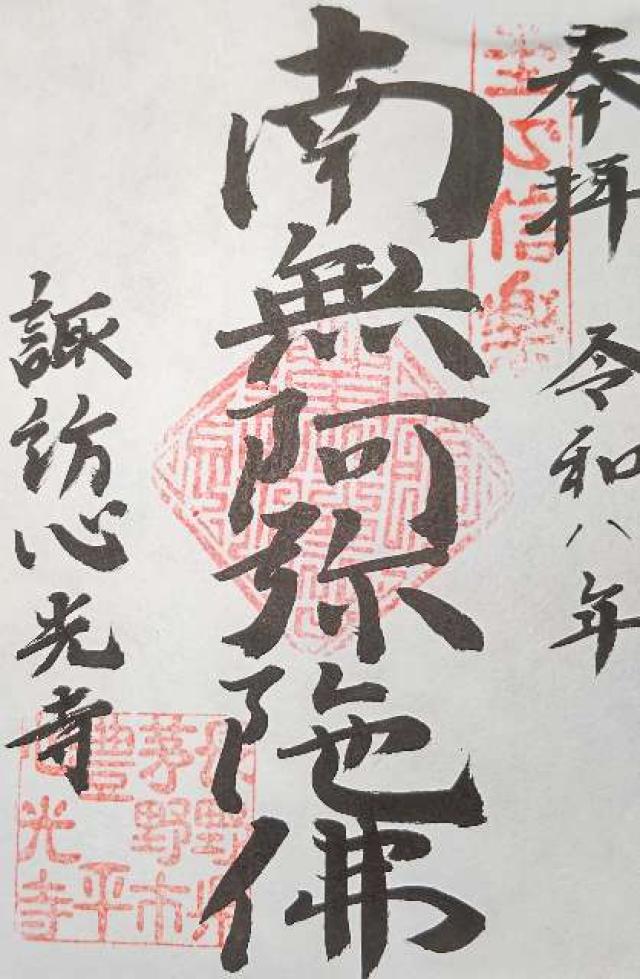 奉拝 令和八年
至心信楽
南無阿弥陀佛
諏訪心光寺
長野県
茅野市
豊平
心光寺